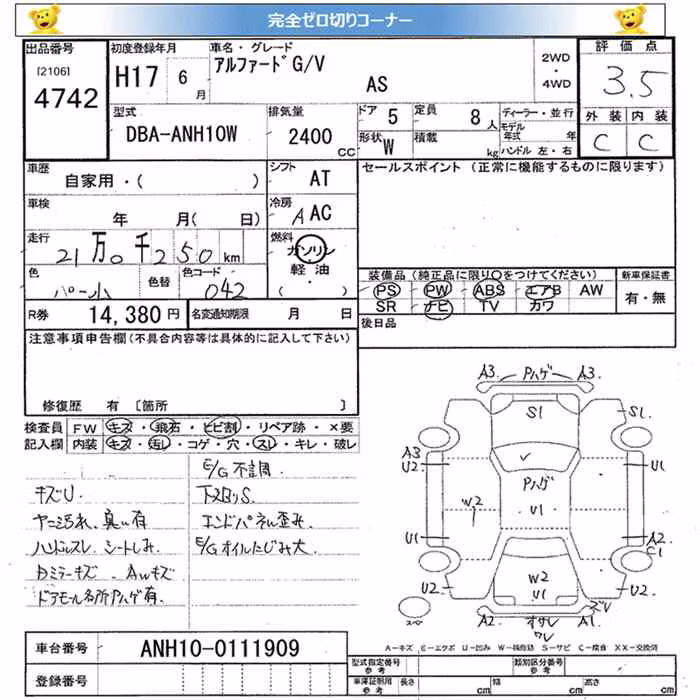 完全ゼロ切りコーナー
出品番号 初度登録年月 車名・グレード 評価点
[2106] H17 6月 アルファードG/V 2WD・4WD 3.5
4742 AS
型式 排気量 ドア 定員 ディーラー・並行 外装 内装
DBA-ANH10W 2400cc 5 8人 モデル年式 年 C C
形状 W 積載 kg ハンドル 左・右
車歴 シフト セールスポイント (正常に機能するものに限ります)
自家用・( ) AT
車検 冷房
年 月( 日) A AC
走行 燃料
21万0千250km ガソリン
軽油
( ・ )
色 色替 色コード 装備品 (純正品に限り○をつけてください) 新車保証書
パール 042 PS PW ABS エアB AW 有・無
SR ナビ TV カワ
R券 14,380円 名変通知期限 月 日 後日品
注意事項申告欄(不具合内容等は具体的に記入して下さい)
修復歴 有 [箇所 ]
検査員 FW キズ・飛石・ヒビ割・リペア跡・×要
記入欄 内装 キズ・汚レ・コゲ・穴・スレ・キレ・破レ
E/G不調
キズU 下スリS
ヤニ汚れ、臭い有 エンドパネル歪み
ハンドルスレ、シートしみ E/Gオイルにじみ大
Dミラーキズ、AWキズ
ドアモール各所Pハゲ有
A3 Pハゲ A3
S1 S1
A3
U2 U1
Pハゲ
W2 U1
U1 A2
C1
W2
U2 U1 U2
スペア A2 オサレ A1 ズレ
ワレ
A-キズ E-エクボ U-凹み W-補修跡 S-サビ C-腐食 XX-交換済
車台番号 ANH10-0111909
登録番号
型式指定番号 参考 類別区分番号 参考
車庫証明用 参考 長さ cm 幅 cm 高さ cm